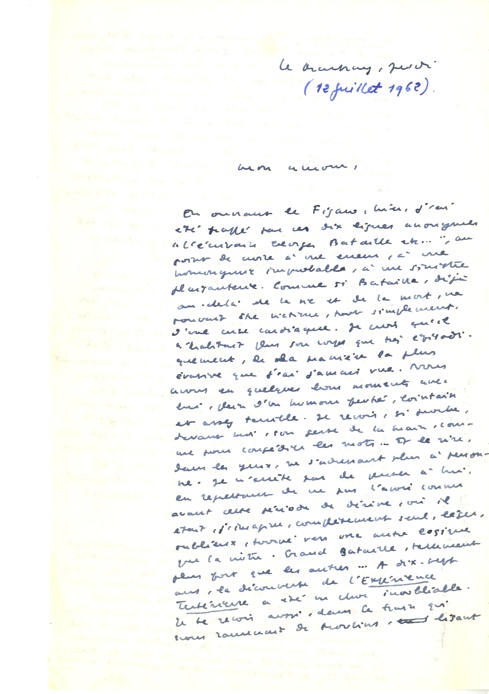 le            , jeudi
(12 Juillet 1962).
mon amour,
En ouvrant le Figaro, hier, j'ai
été frappé par ces dix lignes anonymes
"L'écrivain Georges Bataille etc...", au
point de croire à une erreur, à une
homonymie improbable, à une sinistre
plaisanterie. Comme si Bataille, déjà
au-delà de la vie et de la mort, ne
pouvait être victime, tout simplement,
d'une crise cardiaque. Je crois qu'il
n'habitait plus son corps que très épisodi-
quement, de la manière la plus
évasive que j'ai jamais vue. Nous
avons eu quelques bons moments avec
lui, pleins d'un humour feutré, lointain
et assez terrible. Je revois, si proche,
devant moi, son geste de la main, com-
me pour congédier les mots... Et le rire,
dans les yeux, ne s'adressant plus à person-
ne. Je n'arrête pas de penser à lui,
en regrettant de ne pas l'avoir connu
avant cette période de dérive, où il
était, j'imagine, complètement seul, léger,
oublieux, tourné vers une autre logique
que la nôtre. Grand Bataille, tellement
plus fort que les autres... A dix-sept
ans, la découverte de l'Expérience
Intérieure a été un choc inoubliable.
Je te revois aussi, dans le train qui
nous ramenait de Moulins, lisant